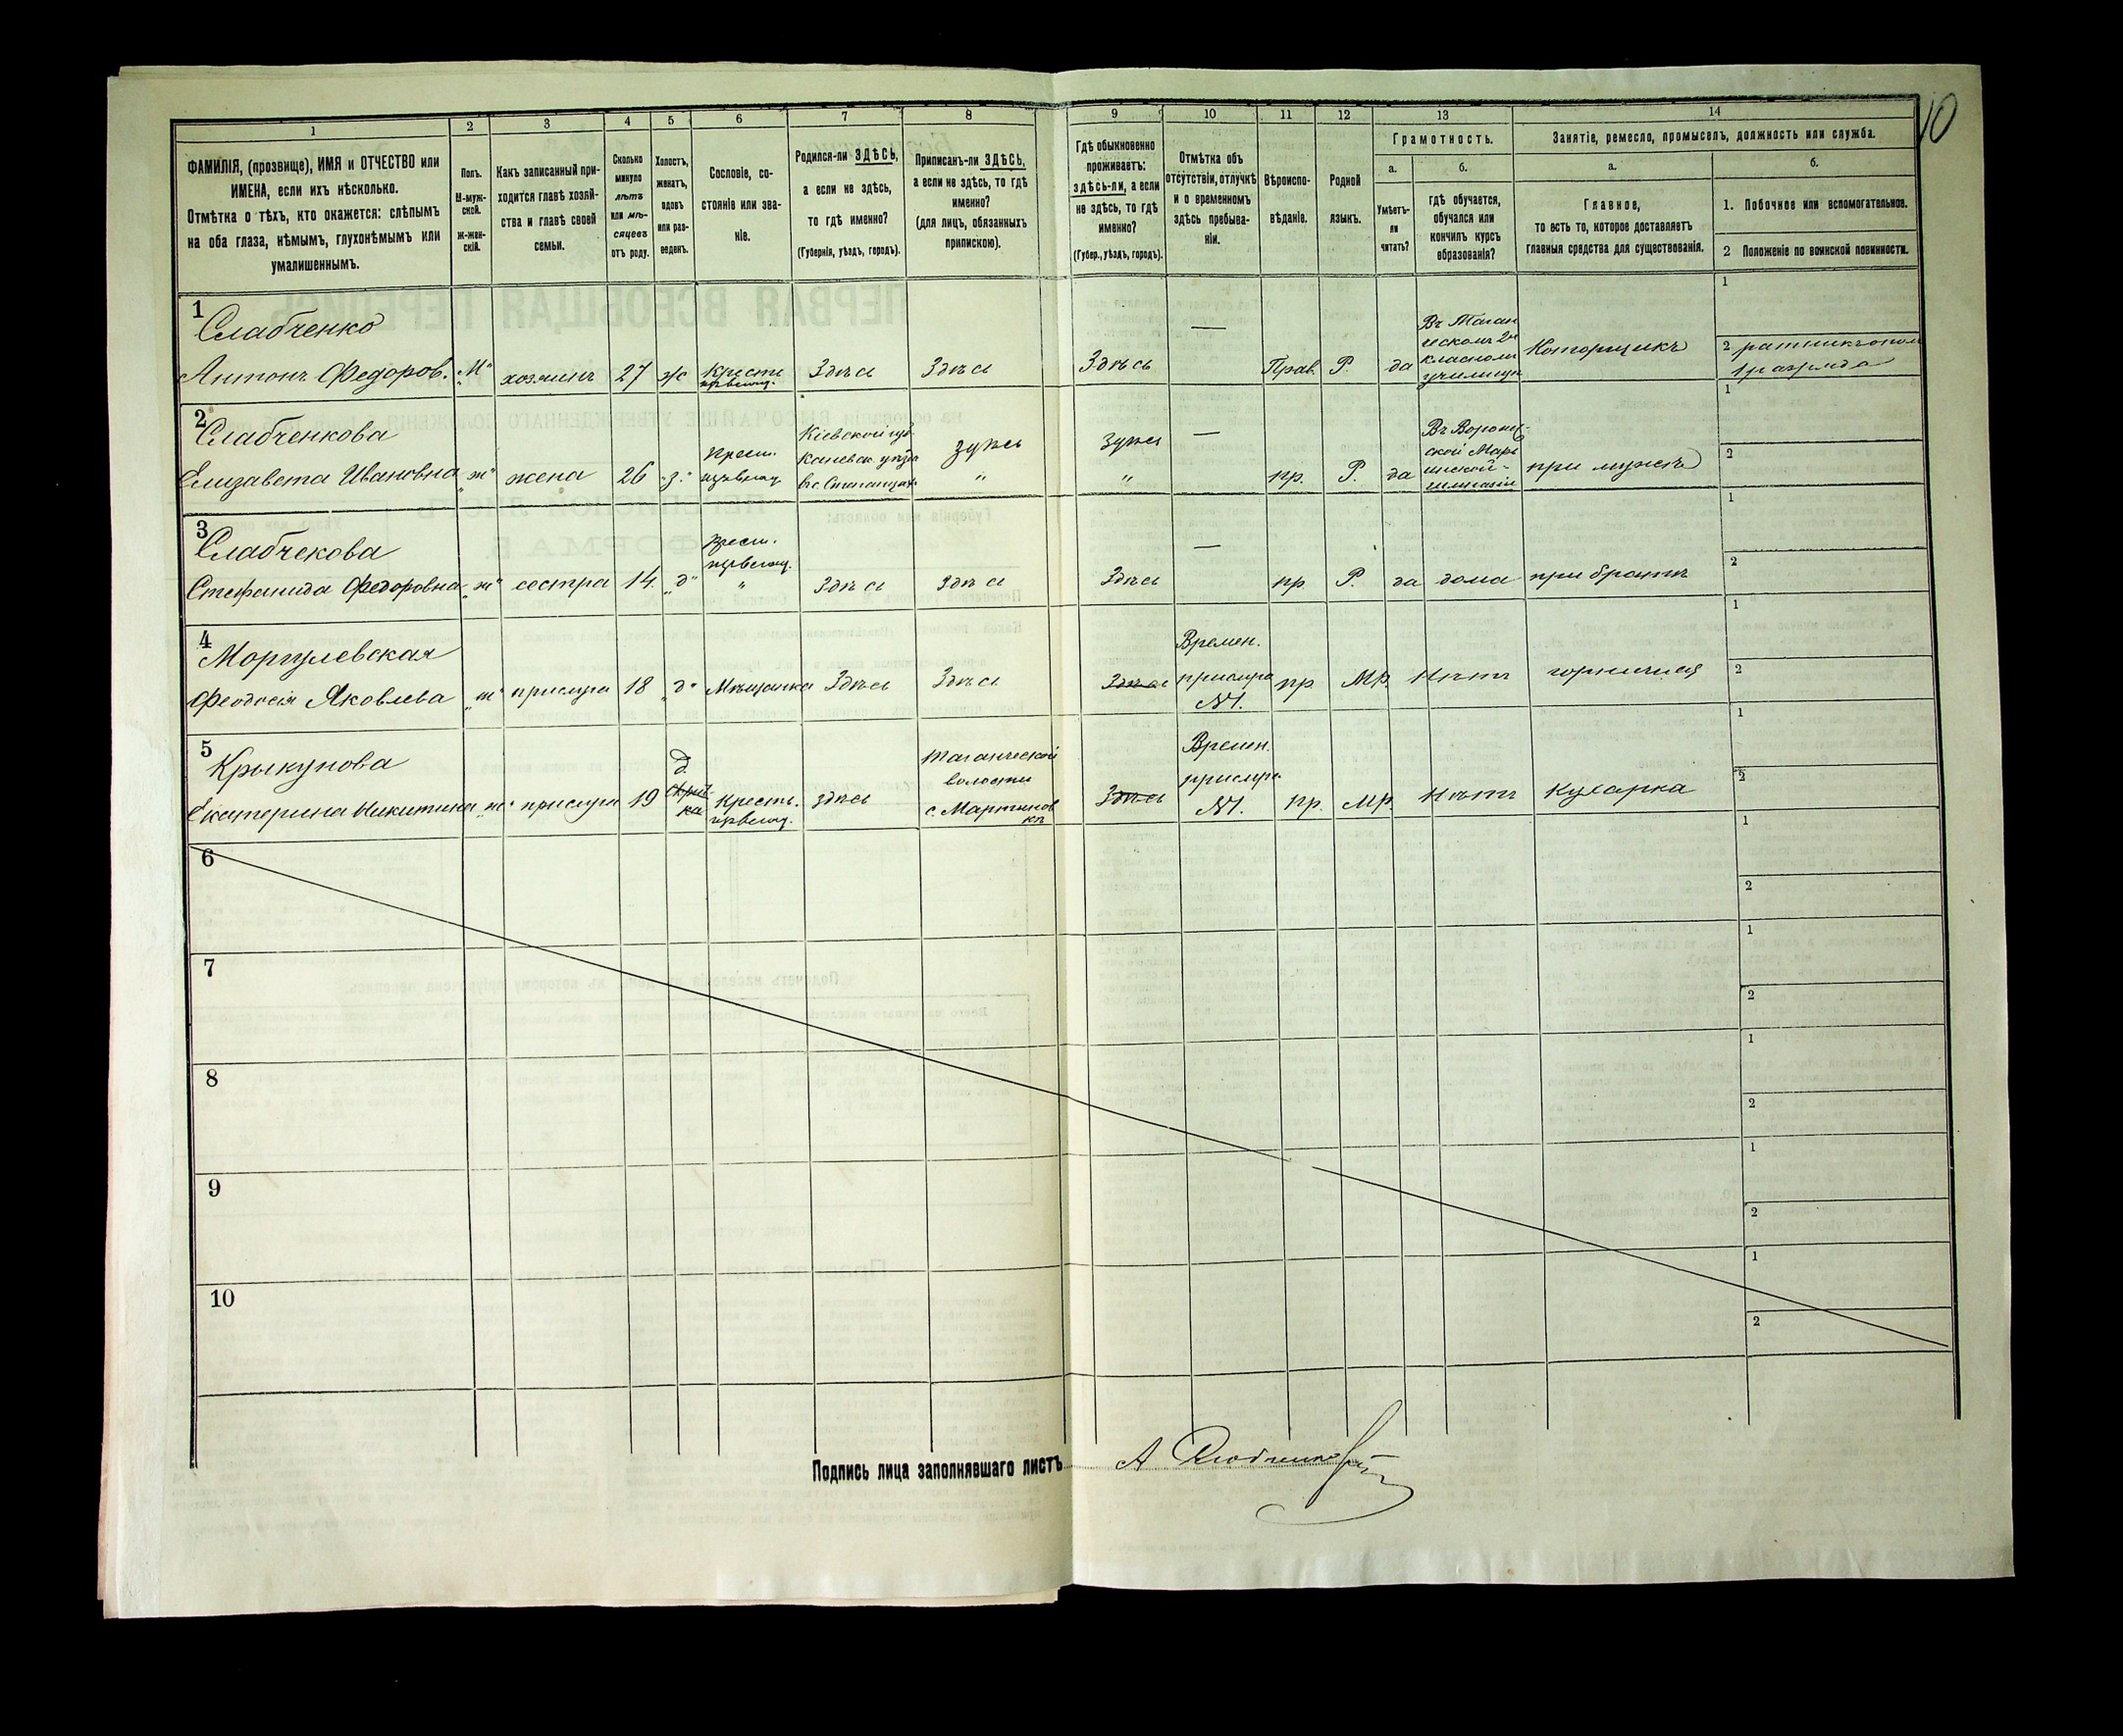 10
1 2 3 4 5 6 7 8 9 10 11 12 13 14
ФАМИЛІЯ, (прозвище), ИМЯ и ОТЧЕСТВО или
ИМЕНА, если ихъ нѣсколько.
Отмѣтка о тѣхъ, кто окажется: слѣпымъ
на оба глаза, нѣмымъ, глухонѣмымъ или
умалишеннымъ.
Полъ.
М-муж-
ской.
ж-жен-
скій.
Какъ записанный при-
ходится главѣ хозяй-
ства и главѣ своей
семьи.
Сколько
минуло
лѣтъ
или мѣ-
сяцевъ
отъ роду.
Холостъ,
женатъ,
вдовъ
или раз-
веденъ.
Сословіе, со-
стояніе или зва-
ніе.
Родился-ли ЗДѢСЬ,
а если не здѣсь,
то гдѣ именно?
(Губернія, уѣздъ, городъ).
Приписанъ-ли ЗДѢСЬ,
а если не здѣсь, то гдѣ
именно?
(для лицъ, обязанныхъ
припискою).
Гдѣ обыкновенно
проживаетъ:
здѣсь-ли, а если
не здѣсь, то гдѣ
именно?
(Губер., уѣздъ, городъ).
Отмѣтка объ
отсутствіи, отлучкѣ
и о временномъ
здѣсь пребыва-
ніи.
Вѣроиспо-
вѣданіе.
Родной
языкъ.
Грамотность.
а.
Умѣетъ-
ли
читать?
б.
гдѣ обучается,
обучался или
кончилъ курсъ
образованія?
Занятіе, ремесло, промыселъ, должность или служба.
а.
Главное,
то есть то, которое доставляетъ
главныя средства для существованія.
б.
1. Побочное или вспомогательное.
2 Положеніе по воинской повинности.
1
Слабченко
Антонъ Федоров. "м" хозяинъ 27 ж Крест. Здѣсь Здѣсь
Здѣсь — Прав. Р да
Въ Таган
ческомъ 2х
класномъ
училищѣ
Конторщикъ
1
2 ратникъ опол
1 разряда
2
Слабченкова
Елизавета Ивановна "ж" жена 26 "з." крест.
Кіевской губ.
Каневск. уѣзда
здѣсь
"
здѣсь
"
— пр. Р. да
Въ Воронеж-
ской Марі
инской
гимназіи
при мужѣ
1
2
3
Слабчекова
Стефанида Федоровна "ж" сестра 14. "д" крест.
"
Здѣсь Здѣсь
Здѣсь — пр. Р. да дома при братѣ
1
2
4
Феодосія Яковлева "ж" прислуга 18 "д" Мѣщанка Здѣсь Здѣсь
Здѣсь
Времен.
прислуга
№1.
пр. Мр. Нѣтъ горничная
1
2
5
Крыкунова
Екатерина Никитина "ж" прислуга 19
д.
Крестъ.
здѣсь
Таганческой
волости
с. Мартинов
кѣ
Здѣсь
Времен.
прислуга
№1.
пр. Мр. Нѣтъ Кухарка
1
2
6
1
2
7
1
2
8
1
2
9
1
2
10
1
2
Подпись лица заполнявшаго листъ